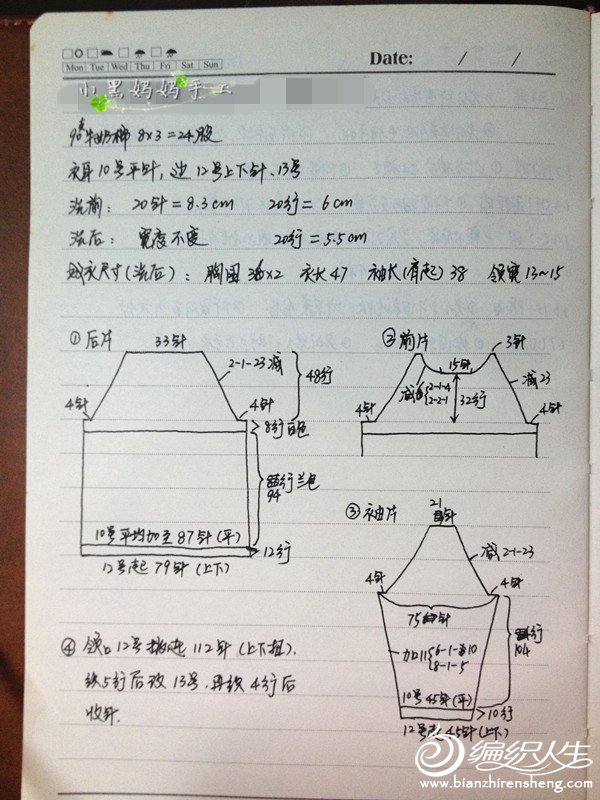 Mon Tue Wed Thu Fri Sat Sun
Date: / /
小黑妈妈手工
牛奶棉 8×3=24股
衣身10号平针,边12号上下针.13号
洗前: 20针=8.3cm 20行=6cm
洗后: 宽度不变 20行=5.5cm
成衣尺寸(洗后): 胸围36×2 衣长47 袖长(肩起)38 领宽13~15
①后片
33针
2-1-23减
48行
4针
4针
8行白色
行兰色
94
10号平均加至87针(平)
12行
12号起79针(上下)
②前片
3针
15针
减
2-1-4
2-2-1
32行
减23
4针
4针
③袖片
21
针
减2-1-23
4针
4针
75针
加11
6-1-
10
8-1-5
行
104
10号45针(平)
10行
12号起45针(上下)
④领:12号挑起112针(上下扭).
织5行后改13号.再织4行后
收针.
编织人生
www.bianzhirensheng.com